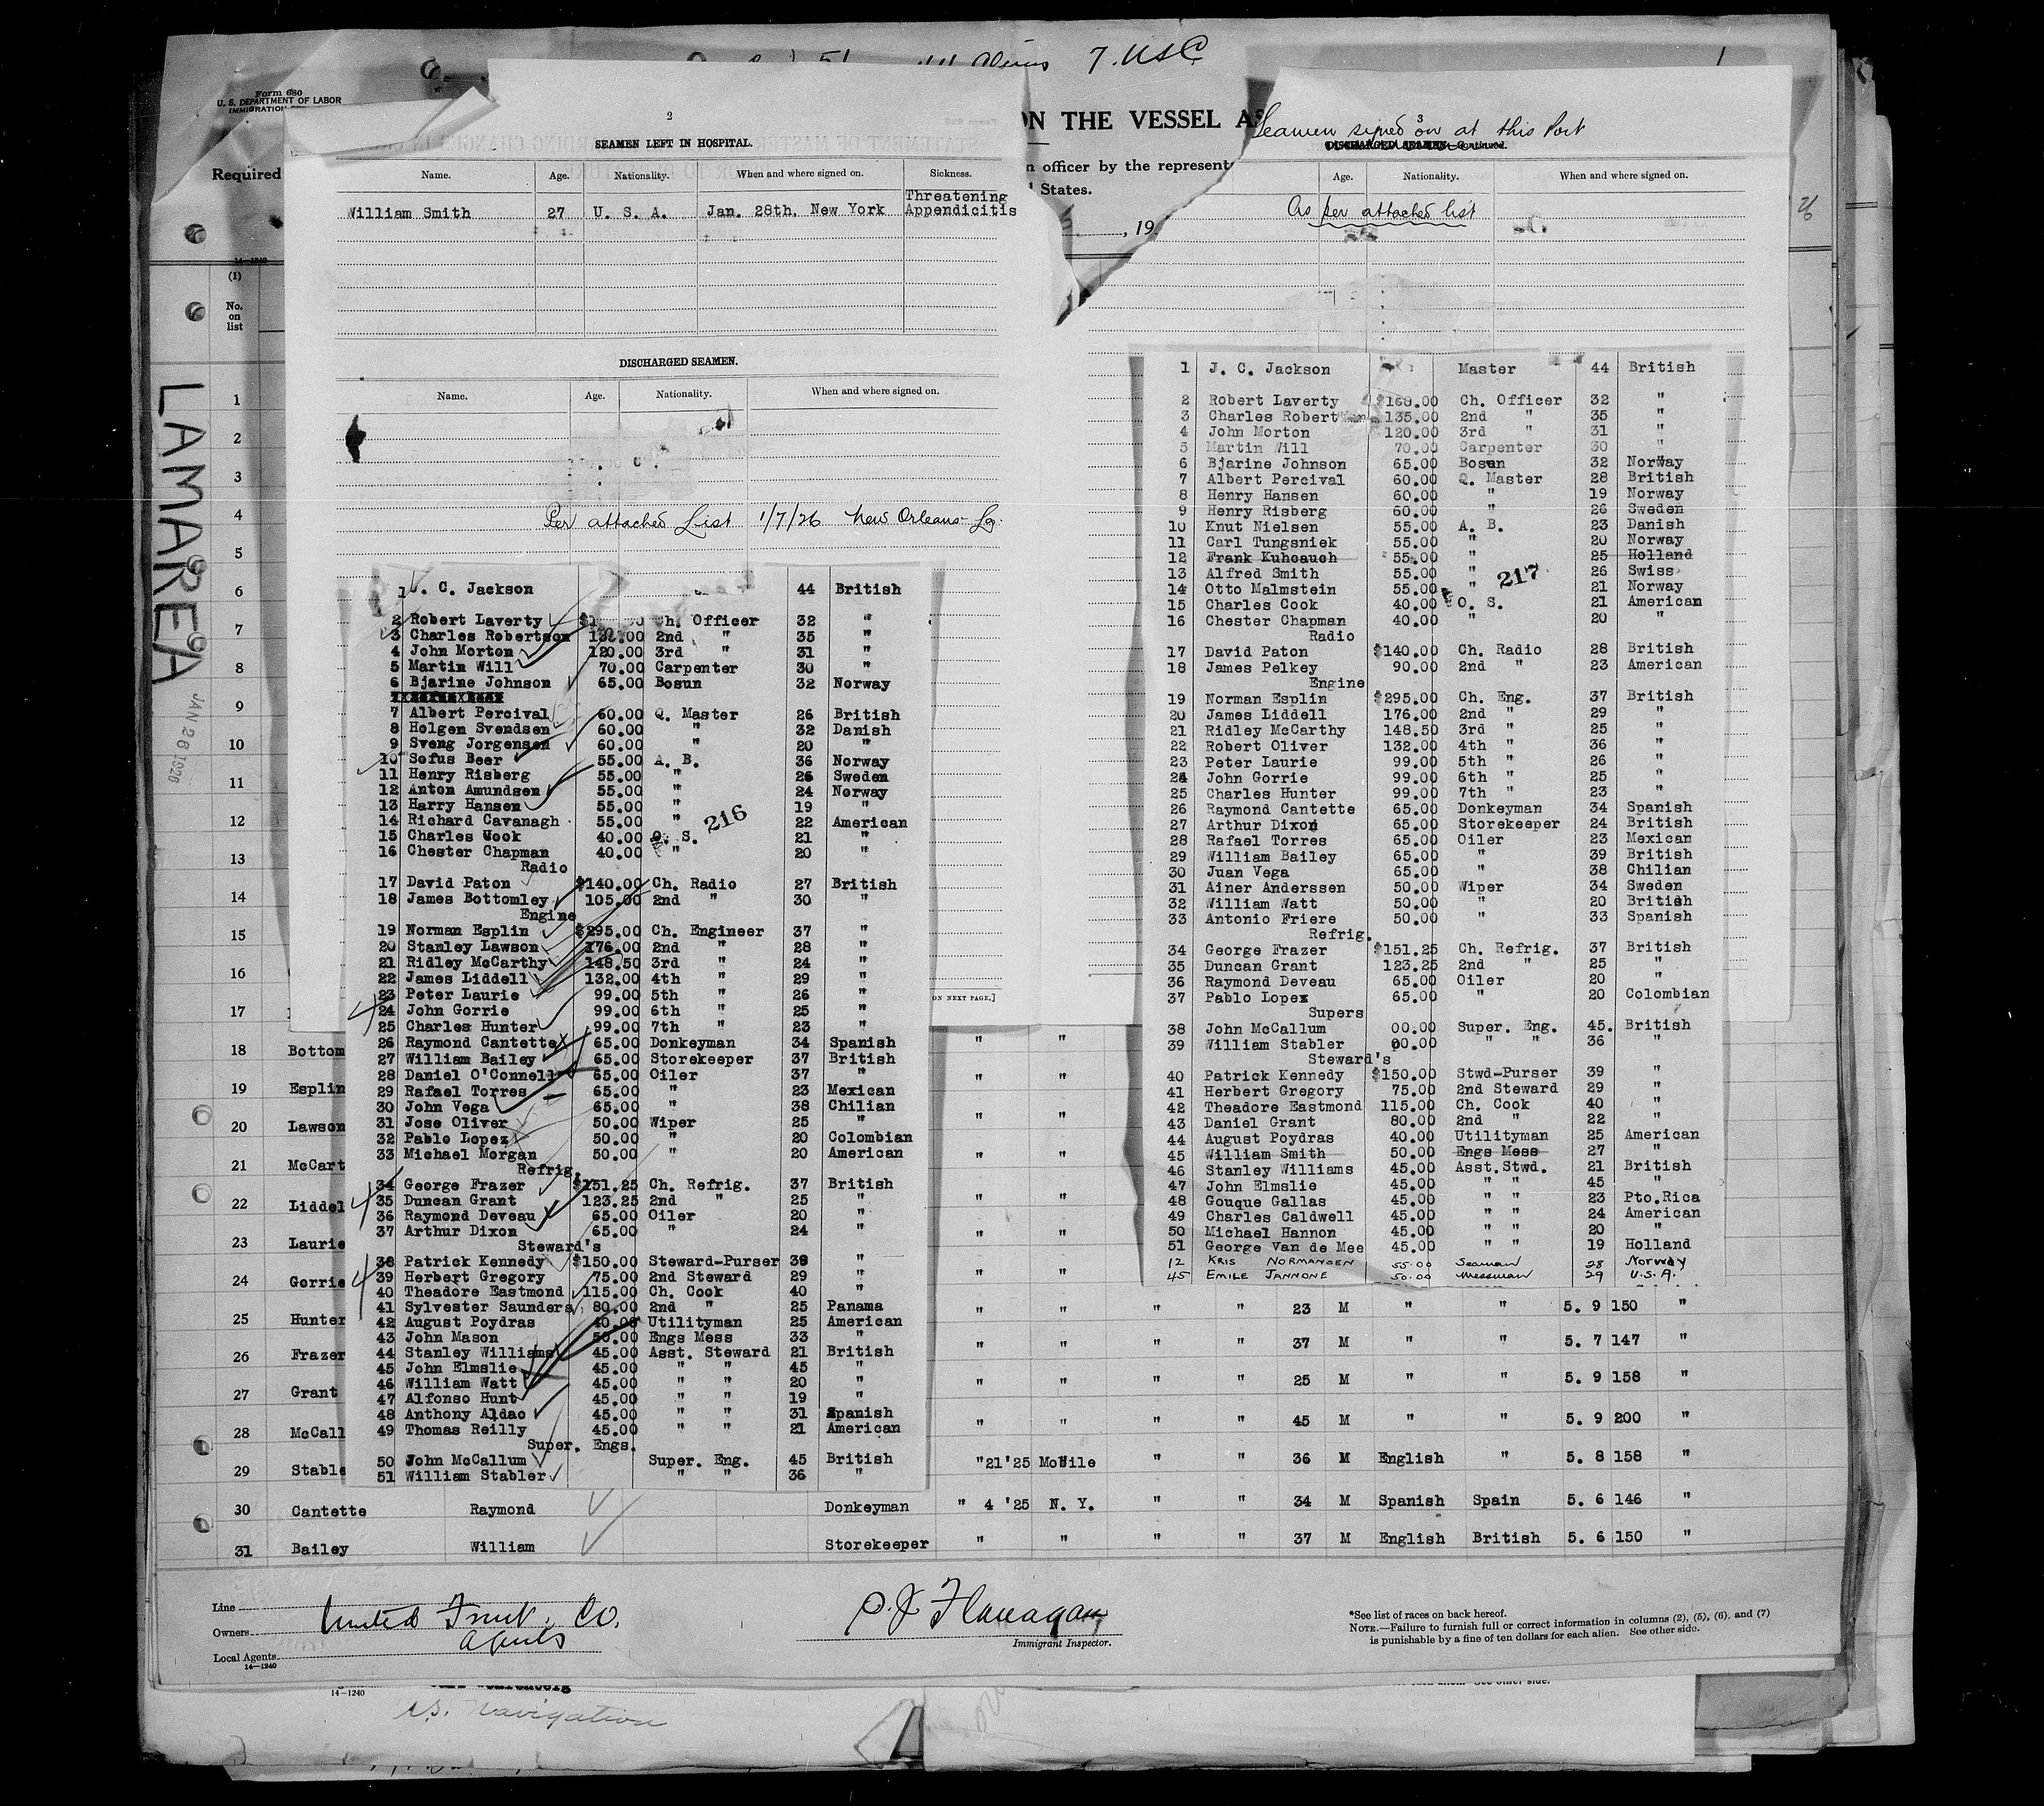 7. USC
Form 680
U. S. DEPARTMENT OF LABOR
ON THE VESSEL AS
Required
n officer by the represent
States.
, 19
14—1240
(1)
No.
on
list
LAMAREA
JAN 28 1926
2
SEAMEN LEFT IN HOSPITAL.
Name. Age. Nationality. When and where signed on. Sickness.
William Smith 27 U. S. A. Jan. 28th. New York Threatening Appendicitis
DISCHARGED SEAMEN.
Name. Age. Nationality. When and where signed on.
Per attached List 1/7/26 New Orleans La.
1 J. C. Jackson 44 British
2 Robert Laverty Ch. Officer 32 "
3 Charles Robertson 135.00 2nd " 35 "
4 John Morton 120.00 3rd " 31 "
5 Martin Will 70.00 Carpenter 30 "
6 Bjarine Johnson 65.00 Bosun 32 Norway
7 Albert Percival 60.00 Q. Master 26 British
8 Holgen Svendsen 60.00 " 32 Danish
9 Sveng Jorgensen 60.00 " 20 "
10 Sofus Beer 55.00 A. B. 36 Norway
11 Henry Risberg 55.00 " 26 Sweden
12 Anton Amundsen 55.00 " 24 Norway
13 Harry Hansen 55.00 " 19 "
14 Richard Cavanagh 55.00 " 22 American
216
15 Charles Cook 40.00 O. S. 21 "
16 Chester Chapman 40.00 " 20 "
Radio
17 David Paton $140.00 Ch. Radio 27 British
18 James Bottomley 105.00 2nd " 30 "
Engine
19 Norman Esplin $295.00 Ch. Engineer 37 "
20 Stanley Lawson 176.00 2nd " 28 "
21 Ridley McCarthy 148.50 3rd " 24 "
22 James Liddell 132.00 4th " 29 "
23 Peter Laurie 99.00 5th " 26 "
24 John Gorrie 99.00 6th " 25 "
25 Charles Hunter 99.00 7th " 23 "
26 Raymond Cantette 65.00 Donkeyman 34 Spanish
27 William Bailey 65.00 Storekeeper 37 British
28 Daniel O'Connell 65.00 Oiler 37 "
29 Rafael Torres 65.00 " 23 Mexican
30 John Vega 65.00 " 38 Chilian
31 Jose Oliver 50.00 Wiper 25 "
32 Pablo Lopez 50.00 " 20 Colombian
33 Michael Morgan 50.00 " 20 American
Refrig.
34 George Frazer $151.25 Ch. Refrig. 37 British
35 Duncan Grant 123.25 2nd " 25 "
36 Raymond Deveau 65.00 Oiler 20 "
37 Arthur Dixon 65.00 " 24 "
Steward's
38 Patrick Kennedy $150.00 Steward-Purser 38 "
39 Herbert Gregory 75.00 2nd Steward 29 "
40 Theadore Eastmond 115.00 Ch. Cook 40 "
41 Sylvester Saunders 80.00 2nd " 25 Panama
42 August Poydras 40.00 Utilityman 25 American
43 John Mason 50.00 Engs Mess 33 "
44 Stanley Williams 45.00 Asst. Steward 21 British
45 John Elmslie 45.00 " " 45 "
46 William Watt 45.00 " " 20 "
47 Alfonso Hunt 45.00 " " 19 "
48 Anthony Aldao 45.00 " " 31 Spanish
49 Thomas Reilly 45.00 " " 21 American
Super. Engs.
50 John McCallum Super. Eng. 45 British
51 William Stabler " " 36 "
3
Seamen signed on at this Port
DISCHARGED SEAMEN—Continued.
Age. Nationality. When and where signed on.
As per attached list
1 J. C. Jackson Master 44 British
2 Robert Laverty $160.00 Ch. Officer 32 "
3 Charles Robert 135.00 2nd " 35 "
4 John Morton 120.00 3rd " 31 "
5 Martin Will 70.00 Carpenter 30 "
6 Bjarine Johnson 65.00 Bosun 32 Norway
7 Albert Percival 60.00 Q. Master 28 British
8 Henry Hansen 60.00 " 19 Norway
9 Henry Risberg 60.00 " 26 Sweden
10 Knut Nielsen 55.00 A. B. 23 Danish
11 Carl Tungsniek 55.00 " 20 Norway
12 Frank Kuhcauch 55.00 " 25 Holland
13 Alfred Smith 55.00 " 26 Swiss
217
14 Otto Malmstein 55.00 " 21 Norway
15 Charles Cook 40.00 O. S. 21 American
16 Chester Chapman 40.00 " 20 "
Radio
17 David Paton $140.00 Ch. Radio 28 British
18 James Pelkey 90.00 2nd " 23 American
Engine
19 Norman Esplin $295.00 Ch. Eng. 37 British
20 James Liddell 176.00 2nd " 29 "
21 Ridley McCarthy 148.50 3rd " 25 "
22 Robert Oliver 132.00 4th " 36 "
23 Peter Laurie 99.00 5th " 26 "
24 John Gorrie 99.00 6th " 25 "
25 Charles Hunter 99.00 7th " 23 "
26 Raymond Cantette 65.00 Donkeyman 34 Spanish
27 Arthur Dixon 65.00 Storekeeper 24 British
28 Rafael Torres 65.00 Oiler 23 Mexican
29 William Bailey 65.00 " 39 British
30 Juan Vega 65.00 " 38 Chilian
31 Ainer Anderssen 50.00 Wiper 34 Sweden
32 William Watt 50.00 " 20 British
33 Antonio Friere 50.00 " 33 Spanish
Refrig.
34 George Frazer $151.25 Ch. Refrig. 37 British
35 Duncan Grant 123.25 2nd " 25 "
36 Raymond Deveau 65.00 Oiler 20 "
37 Pablo Lopez 65.00 " 20 Colombian
Supers
38 John McCallum 00.00 Super. Eng. 45. British
39 William Stabler 00.00 " " 36 "
Steward's
40 Patrick Kennedy $150.00 Stwd-Purser 39 "
41 Herbert Gregory 75.00 2nd Steward 29 "
42 Theadore Eastmond 115.00 Ch. Cook 40 "
43 Daniel Grant 80.00 2nd " 22 "
44 August Poydras 40.00 Utilityman 25 American
45 William Smith 50.00 Engs Mess 27 "
46 Stanley Williams 45.00 Asst.Stwd. 21 British
47 John Elmslie 45.00 " " 45 "
48 Gouque Gallas 45.00 " " 23 Pto.Rica
49 Charles Caldwell 45.00 " " 24 American
50 Michael Hannon 45.00 " " 20 "
51 George Van de Mee 45.00 " " 19 Holland
12 KRIS NORMANSEN 55.00 Seaman 28 Norway
45 EMILE JANNONE 50.00 Messman 29 U.S.A.
ON NEXT PAGE.]
1
2
3
4
5
6
7
8
9
10
11
12
13
14
15
16
17
18 Bottom " "
19 Esplin " "
20 Lawson " "
21 McCart " "
22 Liddel " "
23 Laurie " "
24 Gorrie " "
25 Hunter " " " " 23 M " " 5. 9 150 "
26 Frazer " " " " 37 M " " 5. 7 147 "
27 Grant " " " " 25 M " " 5. 9 158 "
28 McCall " " " " 45 M " " 5. 9 200 "
29 Stable "21'25 Mobile " " 36 M English " 5. 8 158 "
30 Cantette Raymond Donkeyman " 4 '25 N. Y. " " 34 M Spanish Spain 5. 6 146 "
31 Bailey William Storekeeper " " " " 37 M English British 5. 6 150 "
Line
Owners United Fruit. Co.
Agents
Local Agents
14—1240
P. J. Flanagan
Immigrant Inspector.
*See list of races on back hereof.
NOTE.—Failure to furnish full or correct information in columns (2), (5), (6), and (7)
is punishable by a fine of ten dollars for each alien. See other side.
14—1240
Navigation